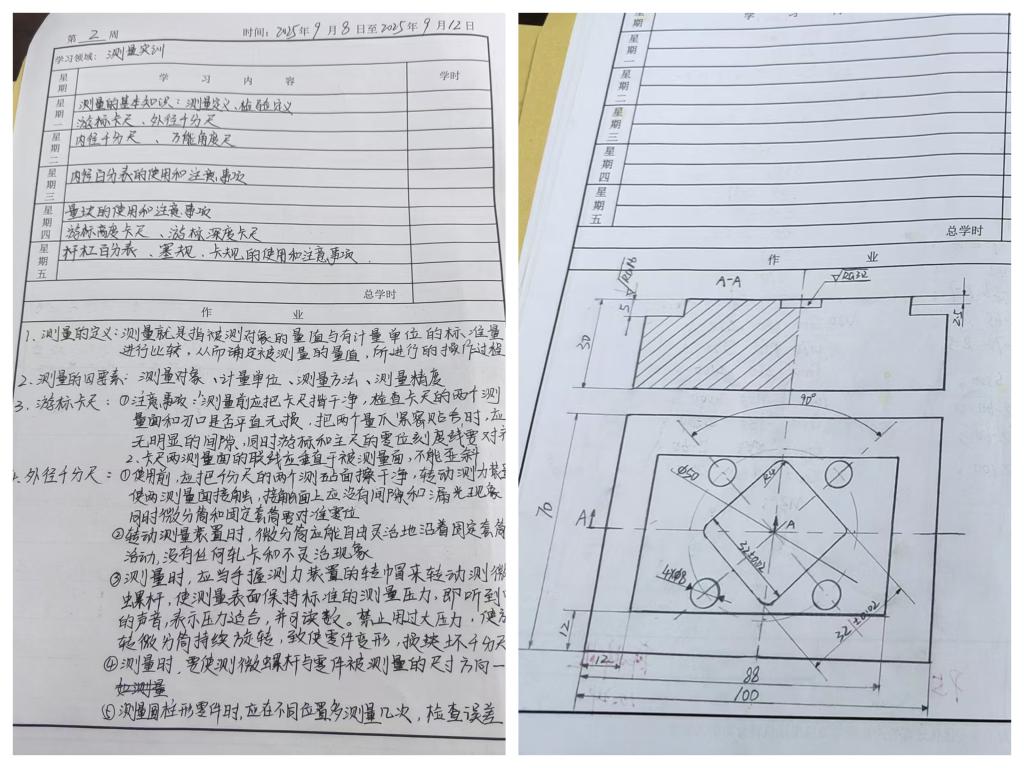 第 2 周 时间：2025年9月8日至2025年9月12日
学习领域： 测量实训
星期 学 习 内 容 学时
星期一 测量的基本知识：测量定义、检验定义
游标卡尺、外径千分尺
星期二 内径千分尺 、万能角度尺
星期三 内径百分表的使用和注意事项
星期四 量块的使用和注意事项
游标高度卡尺 、游标深度卡尺
星期五 杠杠百分表 、塞规、卡规的使用和注意事项.
总学时
作 业
1、测量的定义：测量就是指被测对象的量值与有计量单位的标准量
进行比较，从而确定被测量的量值，所进行的操作过程
2、测量的四要素：测量对象、计量单位、测量方法、测量精度
3、游标卡尺：①注意事项：1测量前应把卡尺揩干净，检查卡尺的两个测
量面和刃口是否平直无损，把两个量爪紧密贴合时，应
无明显的间隙，同时游标和主尺的零位刻度线要对
2.卡尺两测量面的联线应垂直于被测量面，不能歪斜
4.外径千分尺：①使用前，应把千分尺的两个测砧面擦干净，转动测力装
使两测量面接触，接触面上应没有间隙和漏光现象
同时微分筒和固定套筒要对准零位
②转动测量装置时，微分筒应能自由灵活地沿着固定套筒
活动，没有任何轧卡和不灵活现象
③测量时，应当手握测力装置的转帽来转动测微
螺杆，使测量表面保持标准的测量压力，即听到
的声音，表示压力适合，并可读数。禁止用过大压力，使
转微分筒持续旋转，致使零件变形，损坏千分尺
④测量时，要使测微螺杆与零件被测量的尺寸方向一
如测量
⑤测量圆柱形零件时，应在不同位置多测量几次，检查误差
学 习
星期一
星期二
星期三
星期四
星期五
总学时
作 业
A-A
Ra1.6
Ra3.2
5
30
2.5
90°
Ø50
R4
A
A
70
32±0.02
4XØ8
32±0.02
12
12
88
100